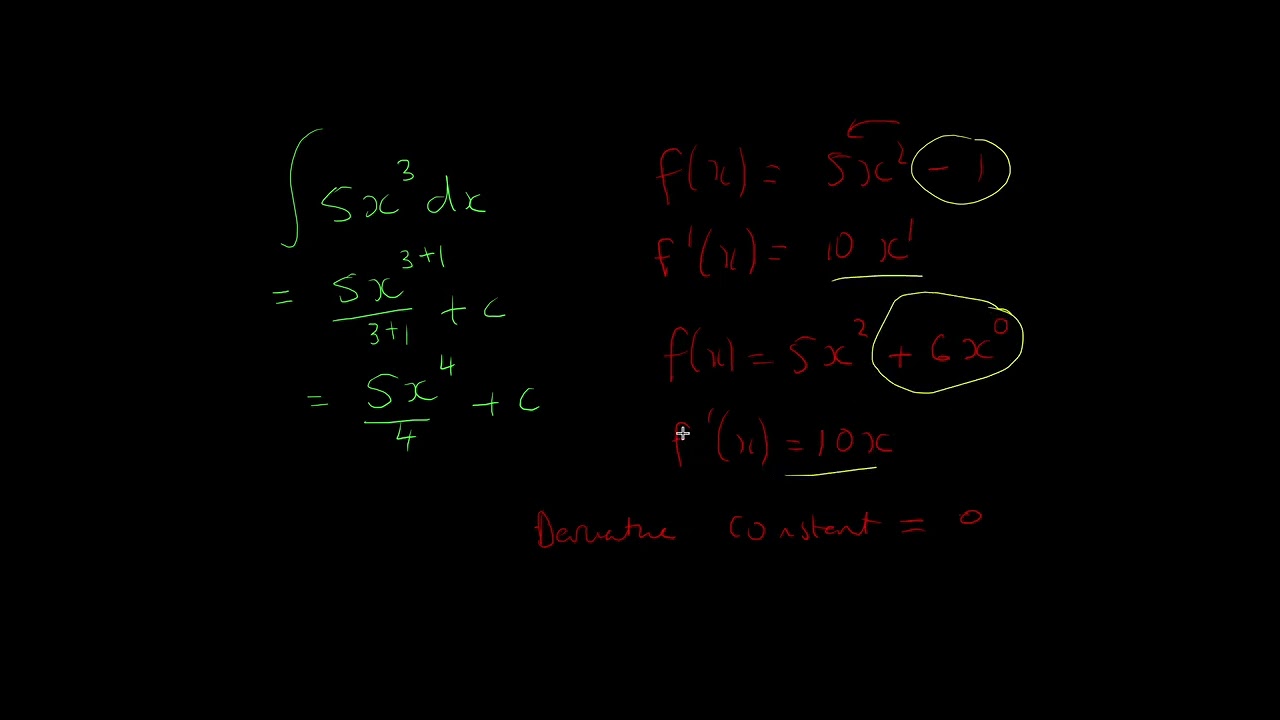 ∫ 5x³ dx
= 5x³⁺¹/3+1 + c
= 5x⁴/4 + c
f(x) = 5x² - 1
f'(x) = 10x¹
f(x) = 5x² + 6x⁰
f'(x) = 10x
Derivative constant = 0